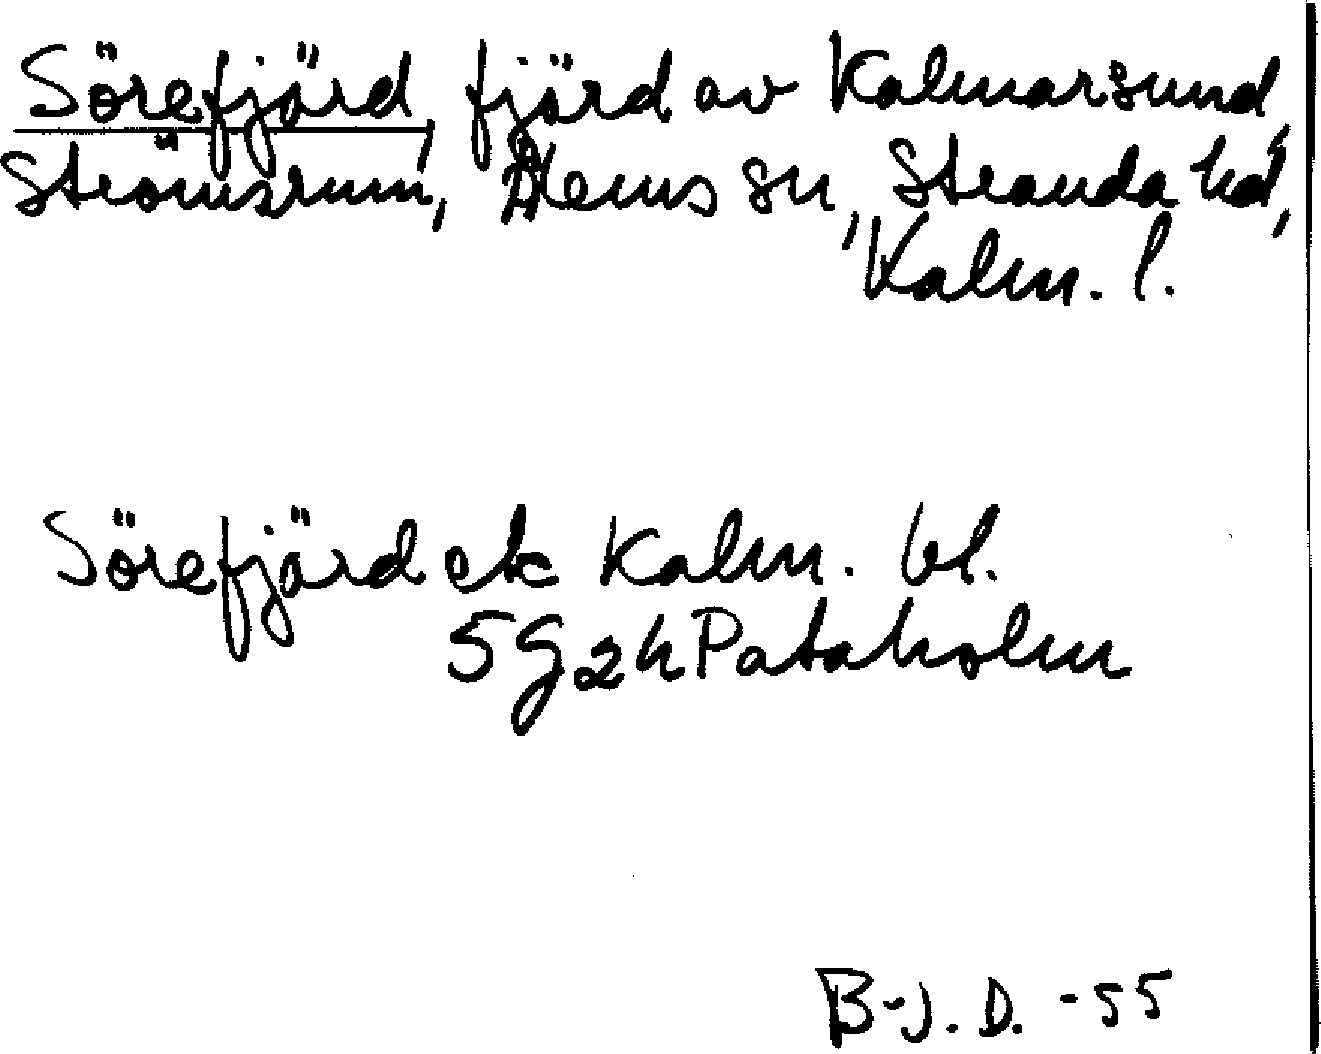 Sörefjärd, fjärd av Kalmarsund,
Strömsrum, Ålems sn, Stranda hd,
Kalm. l.
Sörefjärd ek Kalm. bl.
5G2h Pataholm
B-J. D. -55